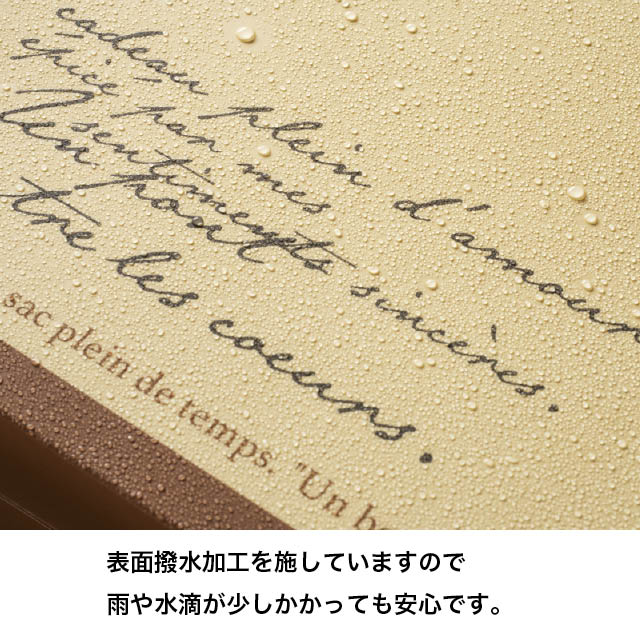 cadeau plein d'amour
épicé par mes
sentiments sincères.
lien pour
tre les coeurs.
sac plein de temps. "Un b
表面撥水加工を施していますので
雨や水滴が少しかかっても安心です。